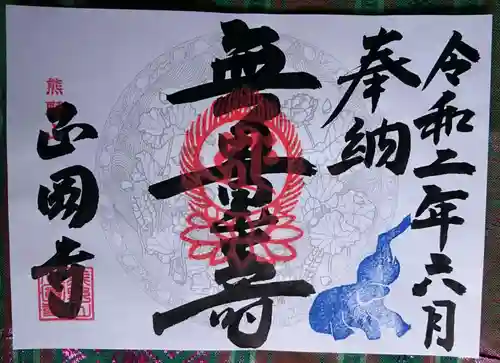 令和二年六月
奉納
無量寿
熊野
正圓寺